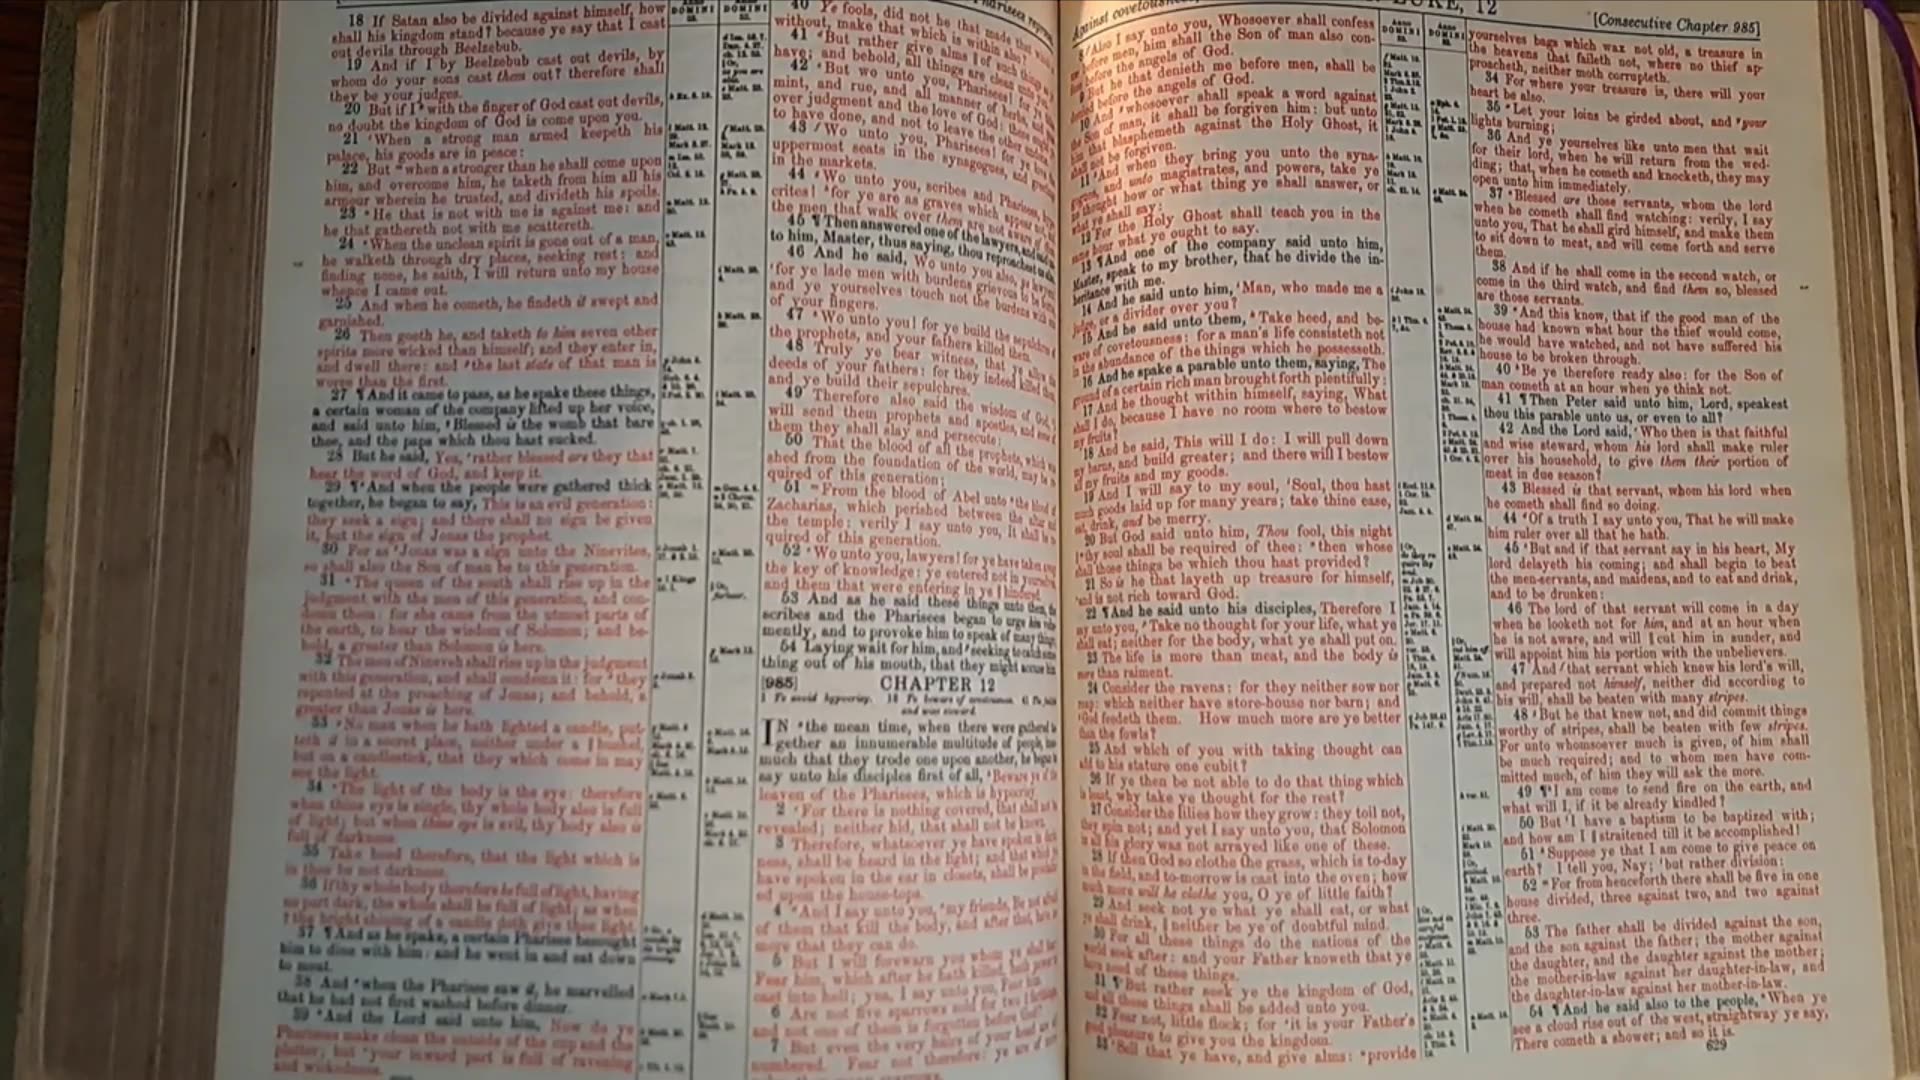 18 If Satan also be divided against himself, how
shall his kingdom stand? because ye say that I cast
out devils through Beelzebub.
19 And if I by Beelzebub cast out devils, by
whom do your sons cast them out? therefore shall
they be your judges.
20 But if I with the finger of God cast out devils,
no doubt the kingdom of God is come upon you.
21 When a strong man armed keepeth his
palace, his goods are in peace:
22 But when a stronger than he shall come upon
him, and overcome him, he taketh from him all his
armour wherein he trusted, and divideth his spoils.
23 He that is not with me is against me: and
he that gathereth not with me scattereth.
24 When the unclean spirit is gone out of a man,
he walketh through dry places, seeking rest: and
finding none, he saith, I will return unto my house
whence I came out.
25 And when he cometh, he findeth it swept and
garnished.
26 Then goeth he, and taketh to him seven other
spirits more wicked than himself; and they enter in,
and dwell there: and the last state of that man is
worse than the first.
27 ¶ And it came to pass, as he spake these things,
a certain woman of the company lifted up her voice,
and said unto him, Blessed is the womb that bare
thee, and the paps which thou hast sucked.
28 But he said, Yea, rather blessed are they that
hear the word of God, and keep it.
29 ¶ And when the people were gathered thick
together, he began to say, This is an evil generation:
they seek a sign; and there shall no sign be given
it, but the sign of Jonas the prophet.
30 For as Jonas was a sign unto the Ninevites,
so shall also the Son of man be to this generation.
31 The queen of the south shall rise up in the
judgment with the men of this generation, and con-
demn them: for she came from the utmost parts of
the earth, to hear the wisdom of Solomon; and be-
hold, a greater than Solomon is here.
32 The men of Nineveh shall rise up in the judgment
with this generation, and shall condemn it: for they
repented at the preaching of Jonas; and behold, a
greater than Jonas is here.
33 No man when he hath lighted a candle, put-
teth it in a secret place, neither under a bushel,
but on a candlestick, that they which come in may
see the light.
34 The light of the body is the eye: therefore
when thine eye is single, thy whole body also is full
of light; but when thine eye is evil, thy body also is
full of darkness.
35 Take heed therefore, that the light which is
in thee be not darkness.
36 If thy whole body therefore be full of light, having
no part dark, the whole shall be full of light; as when
the bright shining of a candle doth give thee light.
37 ¶ And as he spake, a certain Pharisee besought
him to dine with him: and he went in and sat down
to meat.
38 And when the Pharisee saw it, he marvelled
that he had not first washed before dinner.
39 And the Lord said unto him, Now do ye
Pharisees make clean the outside of the cup and the
platter; but your inward part is full of ravening
and wickedness.
40 Ye fools, did not he that made that which
without, make that which is within also?
41 But rather give alms of such things
have; and behold, all things are clean unto
42 But wo unto you, Pharisees! for ye
mint, and rue, and all manner of herbs, and
over judgment and the love of God: these ought
to have done, and not to leave the other
43 Wo unto you, Pharisees! for ye love
uppermost seats in the synagogues, and greetings
in the markets.
44 Wo unto you, scribes and Pharisees, hypo-
crites! for ye are as graves which appear not,
the men that walk over them are not aware of
45 ¶ Then answered one of the lawyers, and said
to him, Master, thus saying, thou reproachest us
46 And he said, Wo unto you also, ye lawyers!
for ye lade men with burdens grievous to be borne,
and ye yourselves touch not the burdens with one
of your fingers.
47 Wo unto you! for ye build the sepulchres of
the prophets, and your fathers killed them.
48 Truly ye bear witness, that ye allow the
deeds of your fathers: for they indeed killed them,
and ye build their sepulchres.
49 Therefore also said the wisdom of God, I
will send them prophets and apostles, and some of
them they shall slay and persecute:
50 That the blood of all the prophets, which was
shed from the foundation of the world, may be re-
quired of this generation;
51 From the blood of Abel unto the blood of
Zacharias, which perished between the altar and
the temple: verily I say unto you, It shall be re-
quired of this generation.
52 Wo unto you, lawyers! for ye have taken away
the key of knowledge: ye entered not in yourselves,
and them that were entering in ye hindered.
53 And as he said these things unto them, the
scribes and the Pharisees began to urge him vehe-
mently, and to provoke him to speak of many things;
54 Laying wait for him, and seeking to catch some-
thing out of his mouth, that they might accuse him.
[985] CHAPTER 12
1 To avoid hypocrisy,
IN the mean time, when there were gathered to-
gether an innumerable multitude of people, inso-
much that they trode one upon another, he began to
say unto his disciples first of all, Beware ye of the
leaven of the Pharisees, which is hypocrisy.
2 For there is nothing covered, that shall not be
revealed; neither hid, that shall not be known.
3 Therefore, whatsoever ye have spoken in dark-
ness, shall be heard in the light; and that which ye
have spoken in the ear in closets, shall be proclaim-
ed upon the house-tops.
4 And I say unto you, my friends, Be not afraid
of them that kill the body, and after that, have no
more that they can do.
5 But I will forewarn you whom ye shall fear:
Fear him, which after he hath killed, hath power to
cast into hell; yea, I say unto you, Fear him.
6 Are not five sparrows sold for two farthings,
and not one of them is forgotten before God?
7 But even the very hairs of your head are all
numbered. Fear not therefore: ye are of more
LUKE, 12
[Consecutive Chapter 985]
8 Also I say unto you, Whosoever shall confess
me before men, him shall the Son of man also con-
fess before the angels of God.
9 But he that denieth me before men, shall be
denied before the angels of God.
10 And whosoever shall speak a word against
the Son of man, it shall be forgiven him: but unto
him that blasphemeth against the Holy Ghost, it
shall not be forgiven.
11 And when they bring you unto the syna-
gogues, and unto magistrates, and powers, take ye
no thought how or what thing ye shall answer, or
what ye shall say:
12 For the Holy Ghost shall teach you in the
same hour what ye ought to say.
13 ¶ And one of the company said unto him,
Master, speak to my brother, that he divide the in-
heritance with me.
14 And he said unto him, Man, who made me a
judge, or a divider over you?
15 And he said unto them, Take heed, and be-
ware of covetousness: for a man's life consisteth not
in the abundance of the things which he possesseth.
16 And he spake a parable unto them, saying, The
ground of a certain rich man brought forth plentifully:
17 And he thought within himself, saying, What
shall I do, because I have no room where to bestow
my fruits?
18 And he said, This will I do: I will pull down
my barns, and build greater; and there will I bestow
all my fruits and my goods.
19 And I will say to my soul, Soul, thou hast
much goods laid up for many years; take thine ease,
eat, drink, and be merry.
20 But God said unto him, Thou fool, this night
thy soul shall be required of thee: then whose
shall those things be which thou hast provided?
21 So is he that layeth up treasure for himself,
and is not rich toward God.
22 ¶ And he said unto his disciples, Therefore I
say unto you, Take no thought for your life, what ye
shall eat; neither for the body, what ye shall put on.
23 The life is more than meat, and the body is
more than raiment.
24 Consider the ravens: for they neither sow nor
reap: which neither have store-house nor barn; and
God feedeth them. How much more are ye better
than the fowls?
25 And which of you with taking thought can
add to his stature one cubit?
26 If ye then be not able to do that thing which
is least, why take ye thought for the rest?
27 Consider the lilies how they grow: they toil not,
they spin not; and yet I say unto you, that Solomon
in all his glory was not arrayed like one of these.
28 If then God so clothe the grass, which is to-day
in the field, and to-morrow is cast into the oven; how
much more will he clothe you, O ye of little faith?
29 And seek not ye what ye shall eat, or what
ye shall drink, neither be ye of doubtful mind.
30 For all these things do the nations of the
world seek after: and your Father knoweth that ye
have need of these things.
31 ¶ But rather seek ye the kingdom of God,
and all these things shall be added unto you.
32 Fear not, little flock; for it is your Father's
good pleasure to give you the kingdom.
33 Sell that ye have, and give alms: provide
yourselves bags which wax not old, a treasure in
the heavens that faileth not, where no thief ap-
proacheth, neither moth corrupteth.
34 For where your treasure is, there will your
heart be also.
35 Let your loins be girded about, and your
lights burning;
36 And ye yourselves like unto men that wait
for their lord, when he will return from the wed-
ding; that, when he cometh and knocketh, they may
open unto him immediately.
37 Blessed are those servants, whom the lord
when he cometh shall find watching: verily, I say
unto you, That he shall gird himself, and make them
to sit down to meat, and will come forth and serve
them.
38 And if he shall come in the second watch, or
come in the third watch, and find them so, blessed
are those servants.
39 And this know, that if the good man of the
house had known what hour the thief would come,
he would have watched, and not have suffered his
house to be broken through.
40 Be ye therefore ready also: for the Son of
man cometh at an hour when ye think not.
41 ¶ Then Peter said unto him, Lord, speakest
thou this parable unto us, or even to all?
42 And the Lord said, Who then is that faithful
and wise steward, whom his lord shall make ruler
over his household, to give them their portion of
meat in due season?
43 Blessed is that servant, whom his lord when
he cometh shall find so doing.
44 Of a truth I say unto you, That he will make
him ruler over all that he hath.
45 But and if that servant say in his heart, My
lord delayeth his coming; and shall begin to beat
the men-servants, and maidens, and to eat and drink,
and to be drunken:
46 The lord of that servant will come in a day
when he looketh not for him, and at an hour when
he is not aware, and will cut him in sunder, and
will appoint him his portion with the unbelievers.
47 And that servant which knew his lord's will,
and prepared not himself, neither did according to
his will, shall be beaten with many stripes.
48 But he that knew not, and did commit things
worthy of stripes, shall be beaten with few stripes.
For unto whomsoever much is given, of him shall
be much required; and to whom men have com-
mitted much, of him they will ask the more.
49 ¶ I am come to send fire on the earth, and
what will I, if it be already kindled?
50 But I have a baptism to be baptized with;
and how am I straitened till it be accomplished!
51 Suppose ye that I am come to give peace on
earth? I tell you, Nay; but rather division:
52 For from henceforth there shall be five in one
house divided, three against two, and two against
three.
53 The father shall be divided against the son,
and the son against the father; the mother against
the daughter, and the daughter against the mother;
the mother-in-law against her daughter-in-law, and
the daughter-in-law against her mother-in-law.
54 ¶ And he said also to the people, When ye
see a cloud rise out of the west, straightway ye say,
There cometh a shower; and so it is.
629